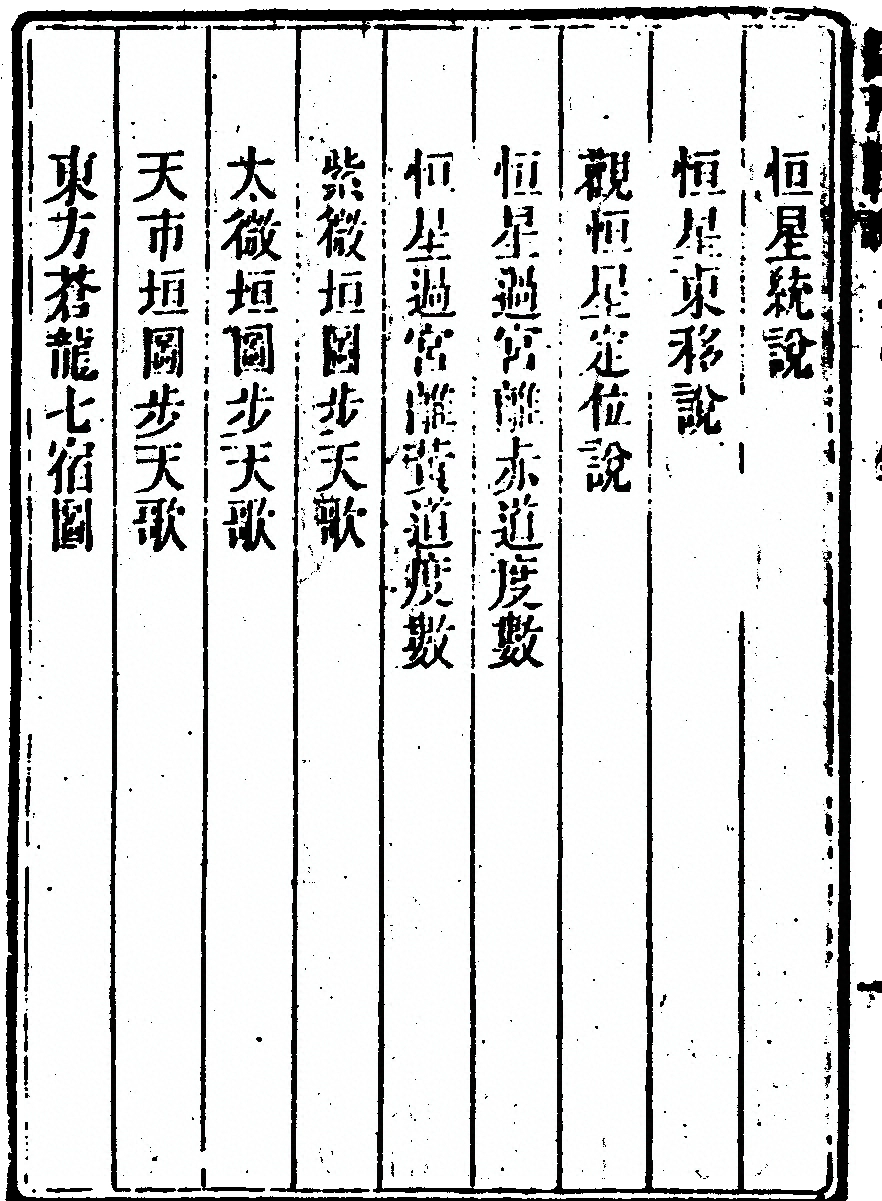 恒星統說
恒星東移說
觀恒星定位說
恒星過宮離赤道度數
恒星過宮離黃道度數
紫微垣圖步天歌
太微垣圖步天歌
天市垣圖步天歌
東方蒼龍七宿圖